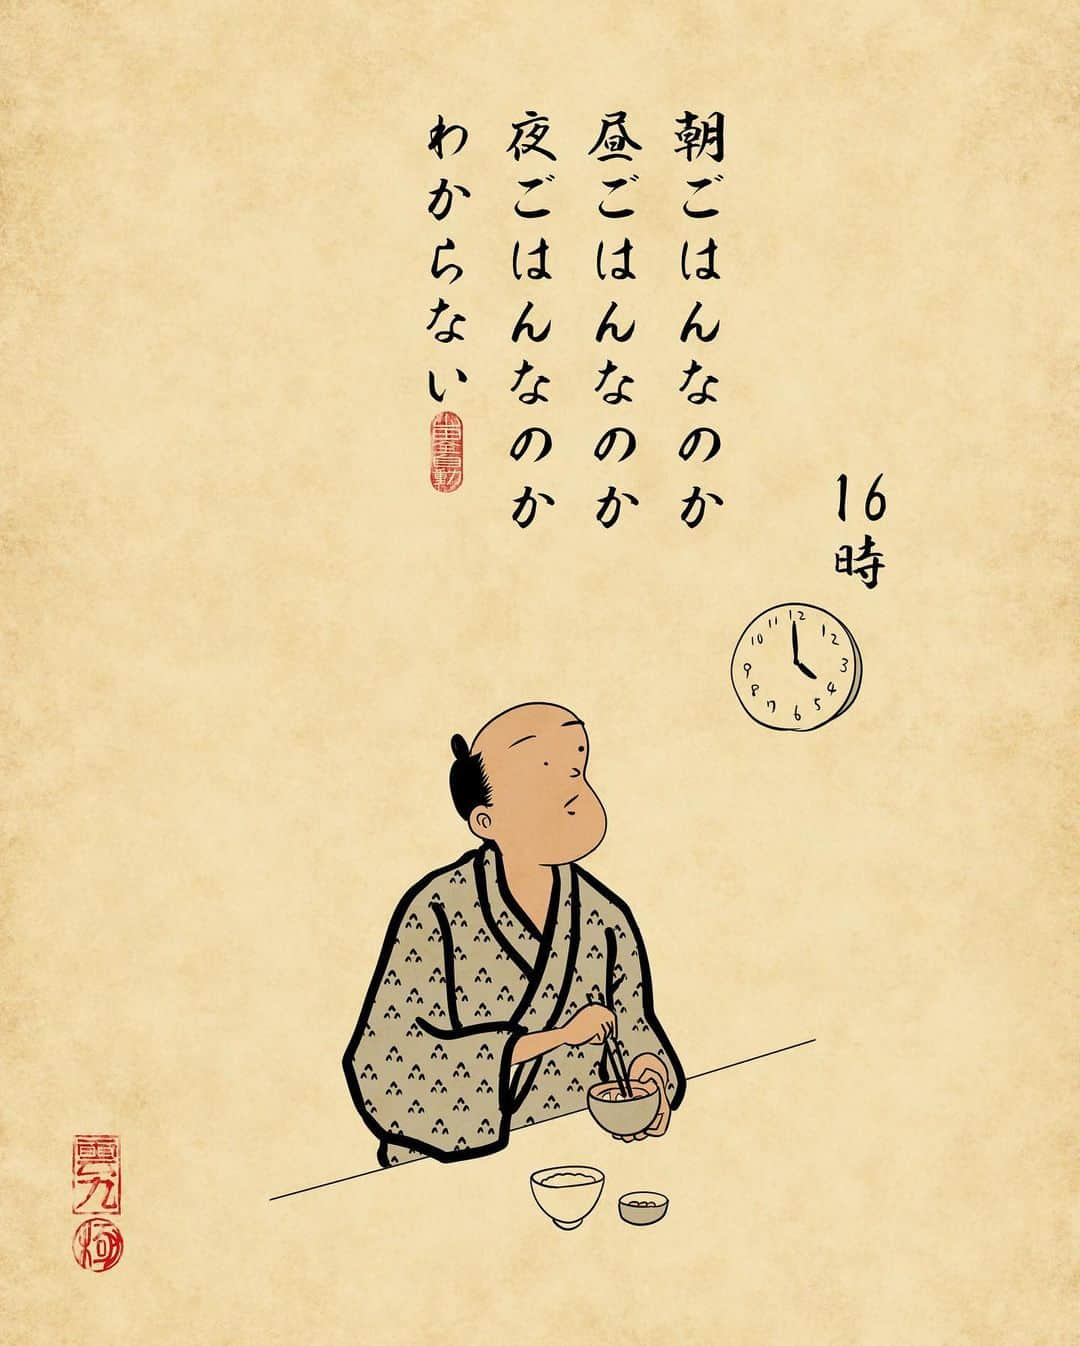 朝ごはんなのか
昼ごはんなのか
夜ごはんなのか
わからない
16時
11 12 12
10
9 3
8 4
7 6 5
雲九
極